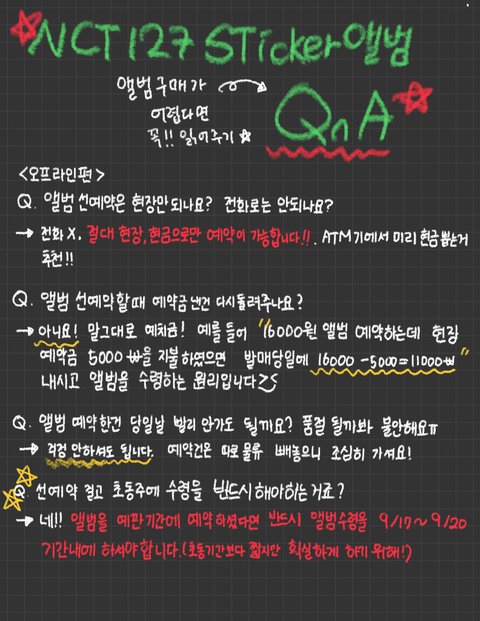 NCT 127 STicker 앨범
앨범구매가
어렵다면
꼭!! 읽어주기☆
QnA
<오프라인편>
Q. 앨범 선예약은 현장만 되나요? 전화로는 안되나요?
→ 전화 X. 절대 현장, 현금으로만 예약이 가능합니다!!. ATM기에서 미리 현금 뽑는거
추천!!
Q. 앨범 선예약할때 예약금 낸건 다시 돌려주나요?
→ 아니요! 말그대로 예치금! 예를 들어 "16000원 앨범 예약하는데 현장
예약금 5000₩을 지불 하였으면 발매당일에 16000-5000=11000₩"
내시고 앨범을 수령하는 원리입니다
Q. 앨범 예약한건 당일날 빨리 안가도 될까요? 품절 될까봐 불안해요ㅠ
→ 걱정 안하셔도 됩니다. 예약건은 따로 물류 빼놓으니 조심히 가셔요!
Q. 선예약 걸고 초동주에 수령을 반드시 해야하는거죠?
→ 네!! 앨범을 예판기간에 예약하셨다면 반드시 앨범수령을 9/17~9/20
기간내에 하셔야 합니다.(초동기간보다 짧지만 확실하게 하기 위해!)